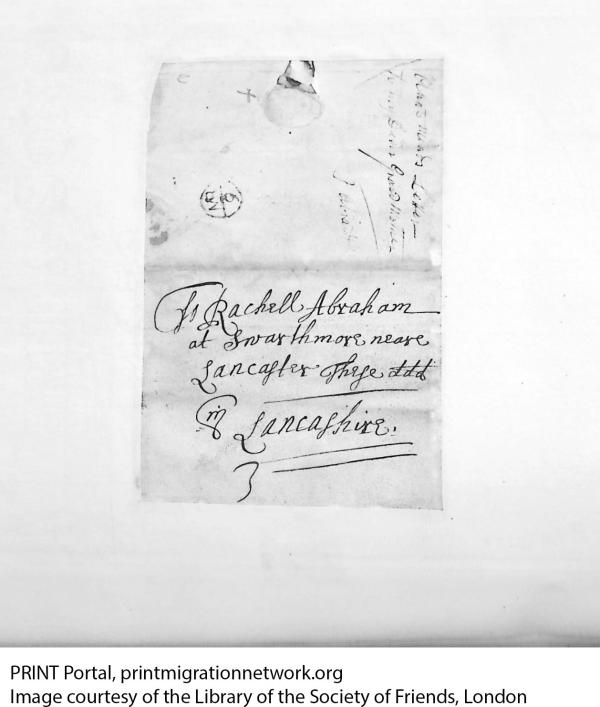 To Rachell Abraham
at Swarthmore neare
Lancaster These ddd
in
Lancashire.
3
Letter
PRINT Portal, printmigrationnetwork.org
Image courtesy of the Library of the Society of Friends, London